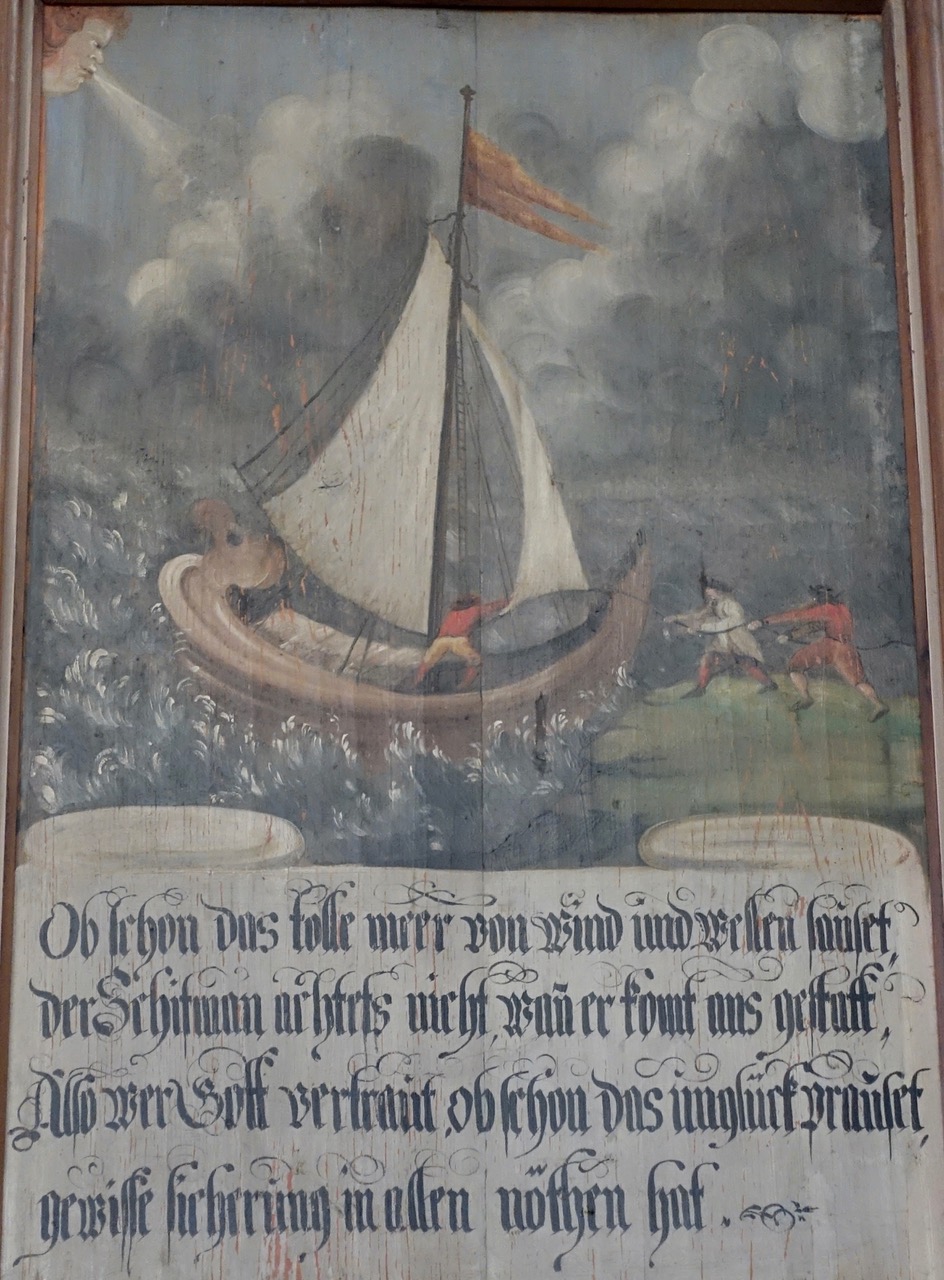 Ob schon das tolle meer von Wind und Wellen sauset,
der Schifman achtets nicht, wañ er komt ans gestatt,
Also wer Gott vertraut, ob schon das unglück prauset,
gewisse sicherung in allen nöthen hat.